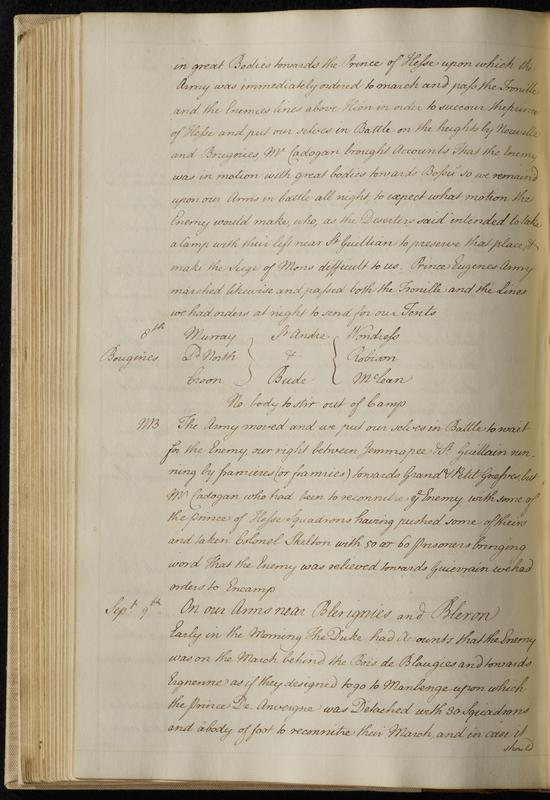 in great Bodies towards the Prince of Hesse upon which the
Army was immediately ordered to march and pass the Tronille
and the Enemies lines above Mon in order to succour the prince
of Hesse and put our selves in Battle on the heights by Nouville
and Bougnies, Mr. Cadogan brought Accounts That the Enemy
was in motion with great bodies towards Bossu so we remaind
upon our Arms in battle all night, to expect what motion the
Enemy would make, who, as the Deserters said intended to take
a Camp with their left near St Guillian to preserve that place, &
make the Seige of Mons difficult to us, Prince Eugenes Army
marched likewise and passed both the Tronille and the Lines
we had orders at night to send for our Tents
8th Murray St Andre Wondress
Bougnies Ld North & Robison
Croon Bude McLean
No body to stir out of Camp
NB The Army moved and we put our selves in Battle to wait
for the Enemy, our right between Jemmapee & St Guillain run-
ning by framieres (or framries) towards Grand & Petit Goesvres, but
Mr Cadogan who had been to reconnitre ye Enemy with some of
the prince of Hesse Squadrons having pushed some of theirs
and taken Colonel Skelton with 50 or 60 prisoners bringing
word That the Enemy was relieved towards Quievrain we had
orders to Encamp
Sept. 9th On our Arms near Blerignies and Bleron
Early in the Morning The Duke had Accounts that the Enemy
was on the March behind the Bois de Blaugies and towards
Ergnenne as if they designed to go to Manbenge upon which
the Prince De Anvergne was Detached with 30 Squadrons
and a body of foot to reconnitre their March, and in case it
should